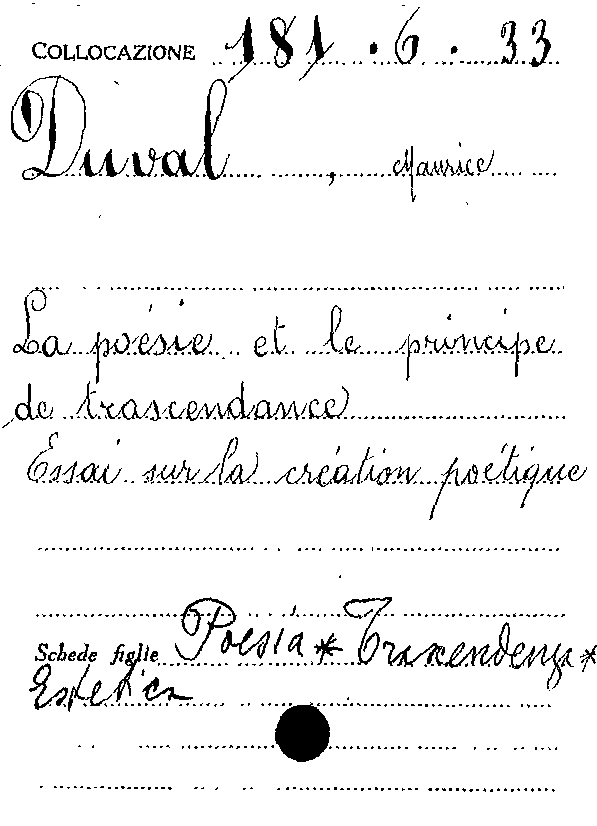 COLLOCAZIONE 181.6.33
Duval, Maurice
La poésie et le principe
de trascendance
Essai sur la création poétique
Schede figlie Poesia * Trascendenza *
Estetica